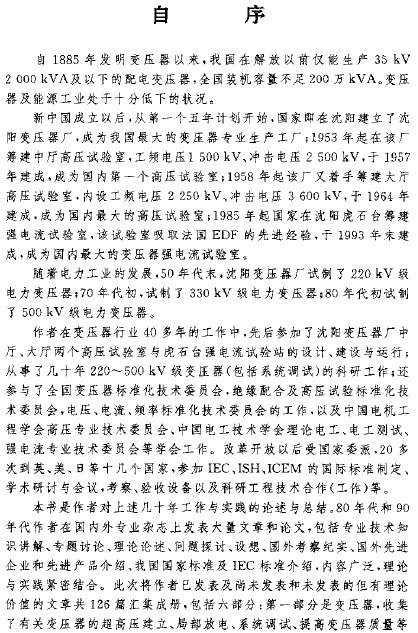 自 序
自 1885 年发明变压器以来,我国在解放以前仅能生产 35 kV
2 000 kVA及以下的配电变压器,全国装机容量不足 200 万 kVA。变压
器及能源工业处于十分低下的状况。
新中国成立以后,从第一个五年计划开始,国家即在沈阳建立了沈
阳变压器厂,成为我国最大的变压器专业生产工厂;1953 年起在该厂
筹建中厅高压试验室,工频电压1 500 kV、冲击电压 2 500 kV,于 1957
年建成,成为国内第一个高压试验室;1958 年起该厂又着手筹建大厅
高压试验室,内设工频电压 2 250 kV、冲击电压 3 600 kV,于 1964 年
建成,成为国内最大的高压试验室;1985 年起国家在沈阳虎石台筹建
强电流试验室,该试验室吸取法国 EDF 的先进经验,于 1993 年末建
成,成为国内最大的变压器强电流试验室。
随着电力工业的发展,50 年代末,沈阳变压器厂试制了 220 kV 级
电力变压器;70 年代初,试制了 330 kV 级电力变压器;80 年代初试制
了 500 kV 级电力变压器。
作者在变压器行业 40 多年的工作中,先后参加了沈阳变压器厂中
厅、大厅两个高压试验室与虎石台强电流试验站的设计、建设与运行;
从事了几十年 220～500 kV 级变压器(包括系统调试)的科研工作;还
参与了全国变压器标准化技术委员会,绝缘配合及高压试验标准化技
术委员会,电压、电流、频率标准化技术委员会的工作,以及中国电机工
程学会高压专业技术委员会、中国电工技术学会理论电工、电工测试、
强电流专业技术委员会等学会工作。改革开放以后受国家委派,20 多
次到英、美、日等十几个国家,参加 IEC,ISH,ICEM 的国际标准制定、
学术研讨与会议,考察、验收设备以及科研工程技术合作(工作)等。
本书是作者对上述几十年工作与实践的论述与总结。80 年代和 90
年代作者在国内外专业杂志上发表大量文章和论文,包括专业技术知
识讲解、专题讨论、理论论述、问题探讨、设想、国外考察纪实、国外先进
企业和先进产品介绍、我国国家标准及 IEC 标准介绍,内容广泛,理论
与实践紧密结合。此次将作者已发表及尚未发表和未发表的但有理论
价值的文章共 126 篇汇集成册,包括六部分:第一部分是变压器,收集
了有关变压器的超高压建立、局部放电、系统调试、提高变压器质量等